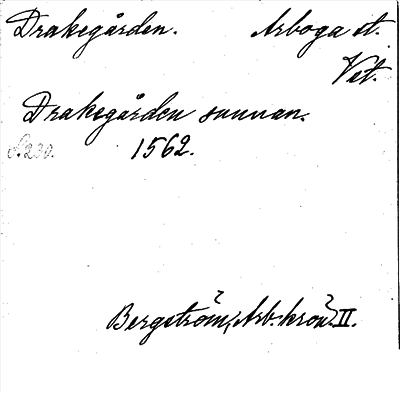 Drakegården. Arboga st.
Vst.
Drakegården sunnan.
S. 230. 1562.
Bergström, Arb. krön. II.